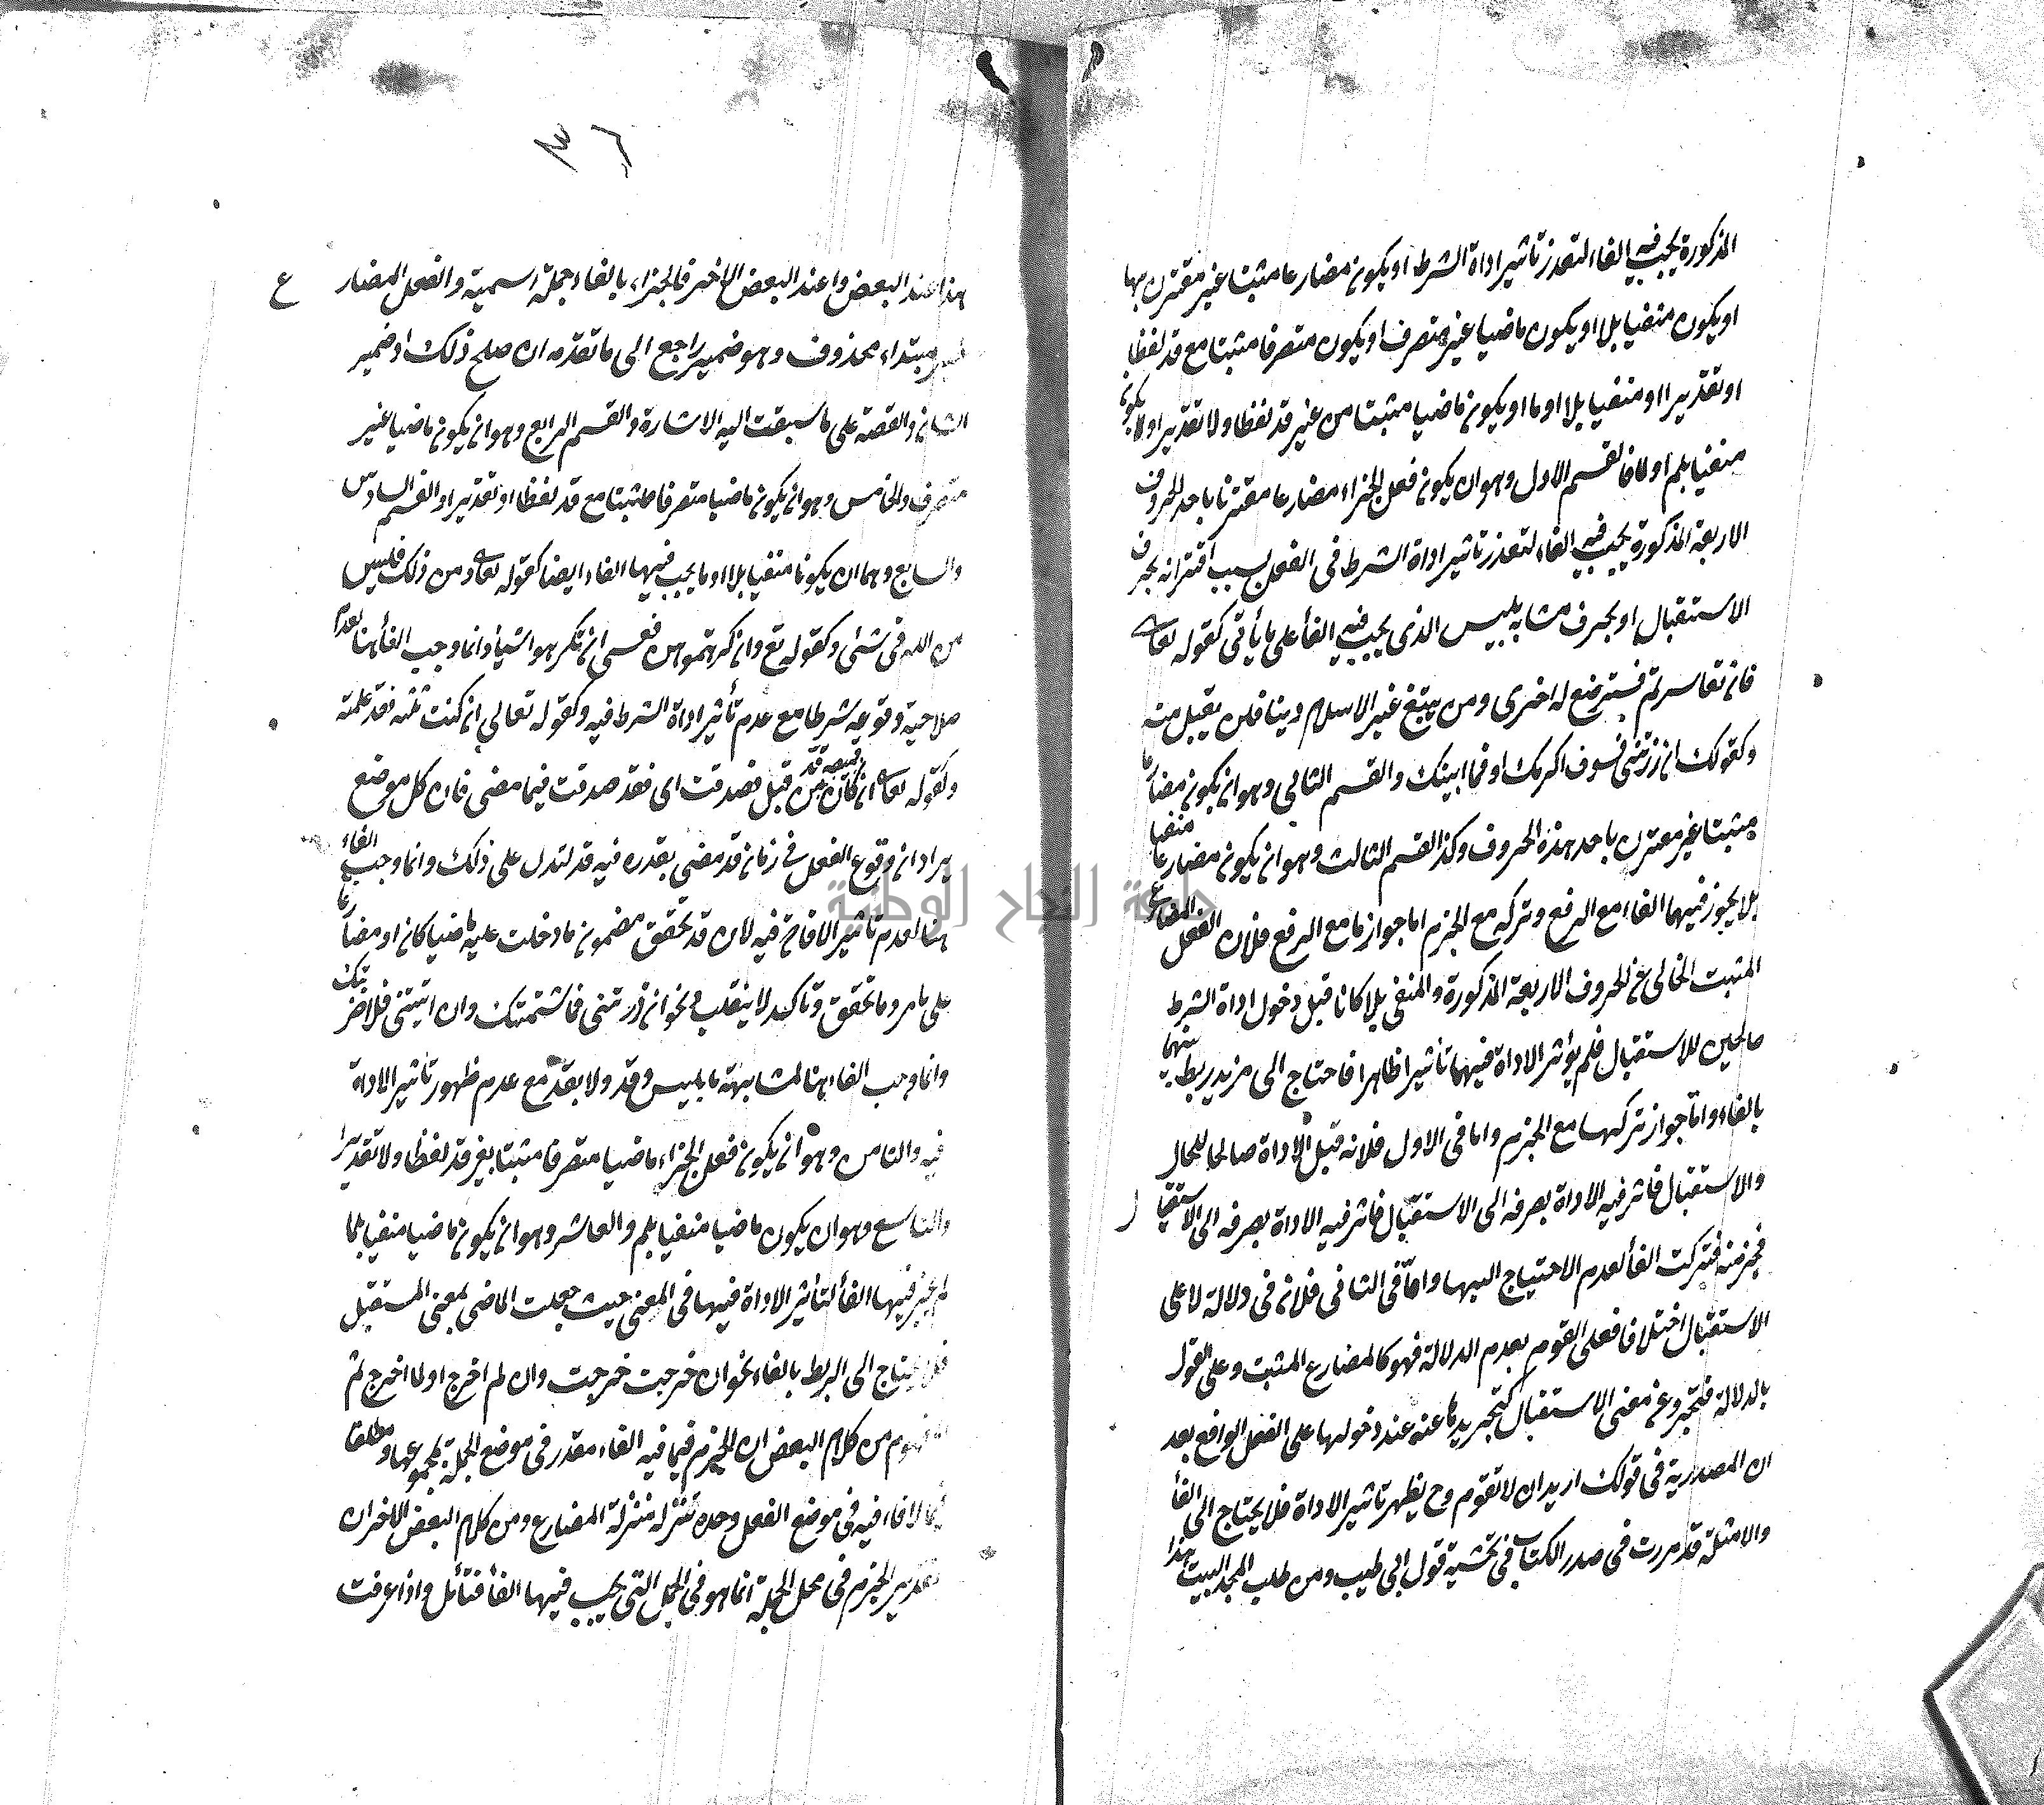 المذكورة يجب فيه الفاء لتعذر تاثير اداة الشرط او يكون مضارعا مثبتا غير مقترن بها
او يكون منفيا بلا او يكون ماضيا غير متصرف او يكون متصرفا مثبتا مع قد لفظا
او تقديرا او منفيا بلا او ما او يكون ماضيا مثبتا من غير قد لفظا ولا تقديرا او لا يكون
منفيا بلم او لما فالقسم الاول وهو ان يكون فعل الجزاء مضارعا مقترنا باحد الحروف
الاربعة المذكورة يجب فيه الفاء لتعذر تاثير اداة الشرط فى الفعل بسبب اقترانه بحرف
الاستقبال او بحرف مشابه بليس الذى يجب فيه الفأ على ما يأتى كقوله تعالى
فان تعاسرتم فسترضع له اخرى ومن يبتغ غير الاسلام دينا فلن يقبل منه
وكقولك ان زرتنى فسوف اكرمك او فما ابينك والقسم الثانى وهو ان يكون مضارعا
مثبتا غير مقترن باحد هذه الحروف وكذا القسم الثالث وهو ان يكون مضارعا منفيا
بلا يجوز فيهما الفاء مع الرفع وتركه مع الجزم اما جوازها مع الرفع فلان الفعل المضارع
المثبت الخالى عن الحروف الاربعة المذكورة والمنفى بلا كانا قبل دخول اداة الشرط
صالحين للاستقبال فلم يؤثر الاداة فيهما تأثيرا ظاهرا فاحتاج الى مزيد ربط بينهما
بالفاء واما جواز تركها مع الجزم واما فى الاول فلانه قبل الاداة صالحا للحال
والاستقبال فاثر فيه الاداة بصرفه الى الاستقبال فاثر فيه الاداة بصرفه الى الاستقبال
فجزمته فتركت الفأ لعدم الاحتياج اليها واما فى الثانى فلان فى دلالة لا على
الاستقبال اختلافا فعلى القوم بعدم الدلالة فهو كالمضارع المثبت وعلى القول
بالدلالة فلتجرد عن معنى الاستقبال كتجريدها عنه عند دخولها على الفعل الواقع بعد
ان المصدرية فى قولك اريد ان لا تقوم وح يظهر تاثير الاداة فلا يحتاج الى الفأ
والامثلة قد مررت فى صدر الكتاب فى تحشية قول ابى طيب ومن طلب المجد البيت هذا
٣٦
هذا عند البعض واعند البعض الاخر فالجزاء بالفاء جملة اسمية والفعل المضارع
مبتداء محذوف وهو ضمير راجع الى ما تقدمه ان صلح ذلك او ضمير
الشان والقصة على ما سبقت اليه الاشارة والقسم الرابع وهو ان يكون ماضيا غير
متصرف والخامس وهو ان يكون ماضيا متصرفا مثبتا مع قد لفظا او تقديرا والقسم السادس
والسابع وهما ان يكونا منفيا بلا او ما يجب فيهما الفاء ايضا كقوله تعالى ومن ذلك فليس
من الله فى شئ وكقوله تع وان كرهتموهن فعسى ان تكرهوا شيئا وانما وجب الفأ هنا لعدم
صلاحية وقوعه شرطا مع عدم تأثير اداة الشرط فيه وكقوله تعالى ان كنت قلته فقد علمته
وكقوله تعالى ان كان قميصه قد من قبل فصدقت اى فقد صدقت فيما مضى فان كل موضع
يراد ان وقوع الفعل فى زمان قد مضى بقدره فيه قد لتدل على ذلك وانما وجب الفاء
هنا لعدم تأثير الاداة فيه لان قد تحقق مضمون ما دخلت عليه ماضيا كان او مضارعا
على ما مر وما تحقق وتاكيد لا ينقلب نحو ان زرتنى فما شتمتك وان اتيتنى فلا ضربتك
وانما وجب الفاء هنا لمشابهة ما بليس وقد ولا بقد مع عدم ظهور تأثير الاداة
فيه والثامن وهو ان يكون فعل الجزاء ماضيا متصرفا مثبتا بغير قد لفظا ولا تقديرا
والتاسع وهو ان يكون ماضيا منفيا بلم والعاشر وهو ان يكون ماضيا منفيا بلما
لم يجز فيها الفأ لتأثير الاداة فيها فى المعنى حيث جعلت الماضى بمعنى المستقبل
فلا يحتاج الى الربط بالفاء نحو ان خرجت خرجت وان لم اخرج او لما اخرج ثم
المفهوم من كلام البعض ان الجزم فيما فيه الفاء مقدر فى موضع الجملة بمجموعها ومطلقا
فيما لا فاء فيه فى موضع الفعل وحده تنزله منزلة المضارع ومن كلام البعض الاخر ان
تقدير الجزم فى محل الجملة انما هو فى الجمل التى يجب فيها الفأ فتأمل واذا عرفت
جامعة النجاح الوطنية